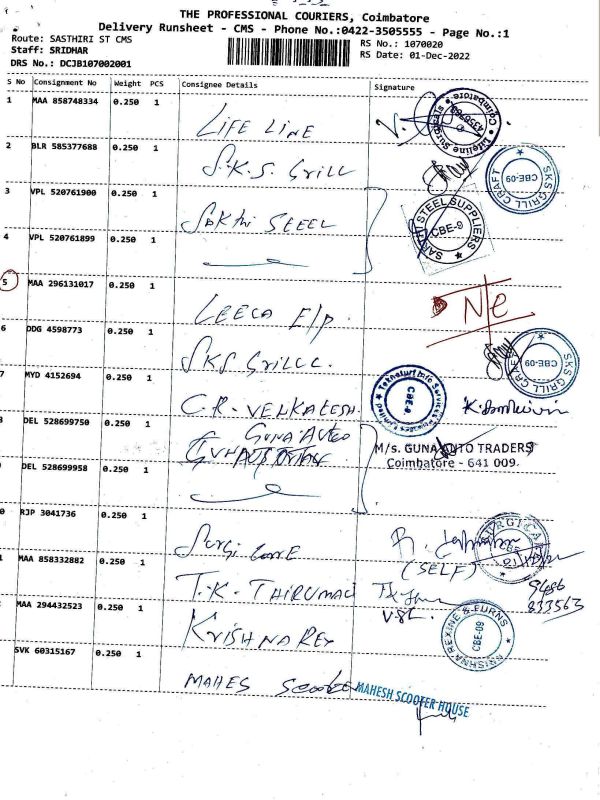 THE PROFESSIONAL COURIERS, Coimbatore
Delivery Runsheet - CMS - Phone No.:0422-3505555 - Page No.:1
Route: SASTHIRI ST CMS
RS No.: 1070020
Staff: SRIDHAR
RS Date: 01-Dec-2022
DRS No.: DCJB107002001
S No Consignment No Weight PCS Consignee Details Signature
1 MAA 858748334 0.250 1 LIFE LINE
Coimbatore Lifeline Surgicals
2 BLR 585377688 0.250 1 S.K.S. GRILL
SKS GRILL CRAFT CBE-09
3 VPL 520761900 0.250 1 SAKTHI STEEL
STEEL SUPPLIERS CBE-9
4 VPL 520761899 0.250 1
5 MAA 296131017 0.250 1 LEECA E/P. N/e
6 DDG 4598773 0.250 1 SKS GRILLL.
SKS GRILL CRAFT CBE-09
7 MYD 4152694 0.250 1 C.R. VENKATESH
CBE-9
DEL 528699750 0.250 1 GUNA AUTO
M/s. GUNA AUTO TRADERS
Coimbatore - 641 009.
DEL 528699958 0.250 1
RJP 3041736 0.250 1 Surgi Care
(SELF)
MAA 858332882 0.250 1 T.K. THIRUMAL
9486
833563
MAA 294432523 0.250 1 KRISHNA REX
KRISHNA REXINE & FURNS CBE-09
SVK 60315167 0.250 1 MAHES Scooter
MAHESH SCOOTER HOUSE